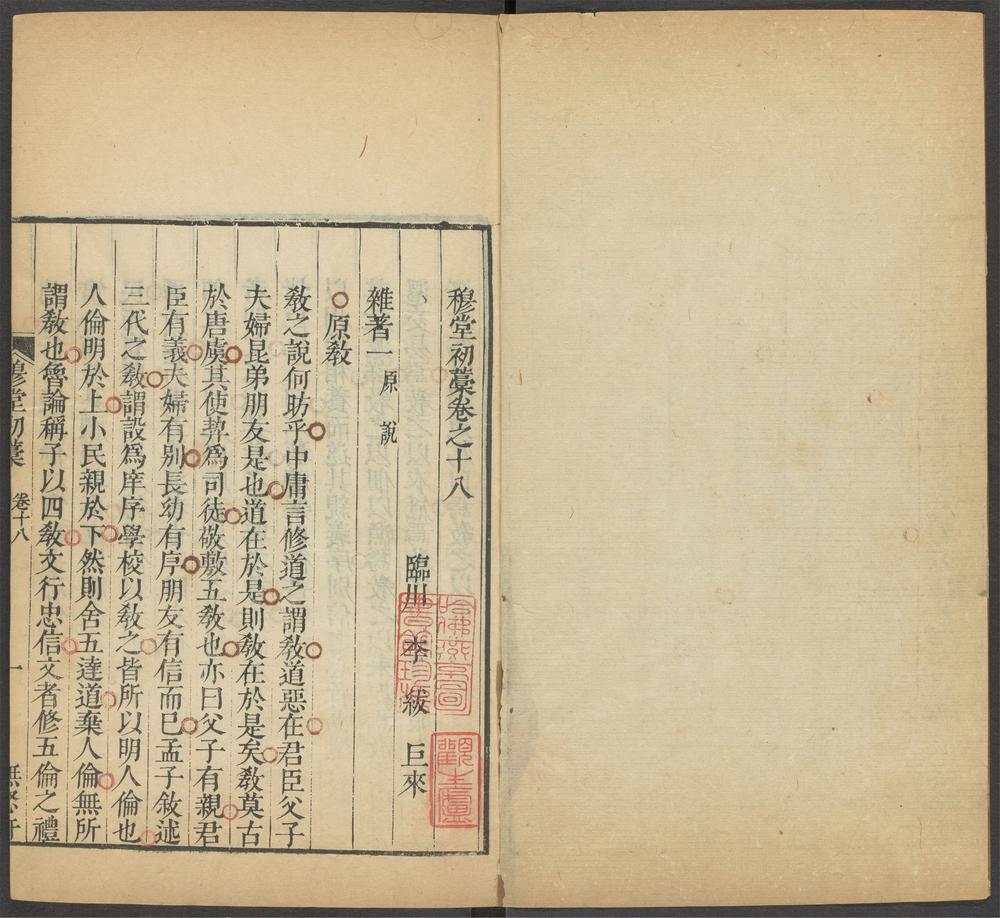 穆堂初藁卷之十八
臨川 李 紱 巨來
雜著一 原 說
原敎
敎之說何昉乎中庸言修道之謂敎道惡在君臣父子
夫婦昆弟朋友是也道在於是則敎在於是矣敎莫古
於唐虞其使契爲司徒敬敷五敎也亦曰父子有親君
臣有義夫婦有別長幼有序朋友有信而已孟子敘述
三代之敎謂設爲庠序學校以敎之皆所以明人倫也
人倫明於上小民親於下然則舍五達道棄人倫無所
謂敎也魯論稱子以四敎文行忠信文者修五倫之禮
穆堂初藁 卷十八 一
哈佛燕京圖書館珍藏
觀生廬